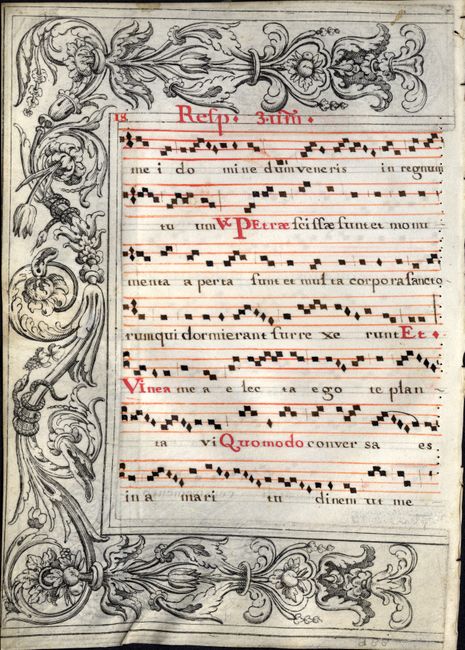 18 Resp. 3.
me i do mine dum veneris in regnum
tu um ℣ PEtræ scissæ sunt et monu
menta a perta sunt et mul ta corpora sancto
rum qui dormierant surre xe runt Et
Vinea me a e lec ta ego te plan
ta vi Quomodo conver sa es
in a mari tu dinem ut me